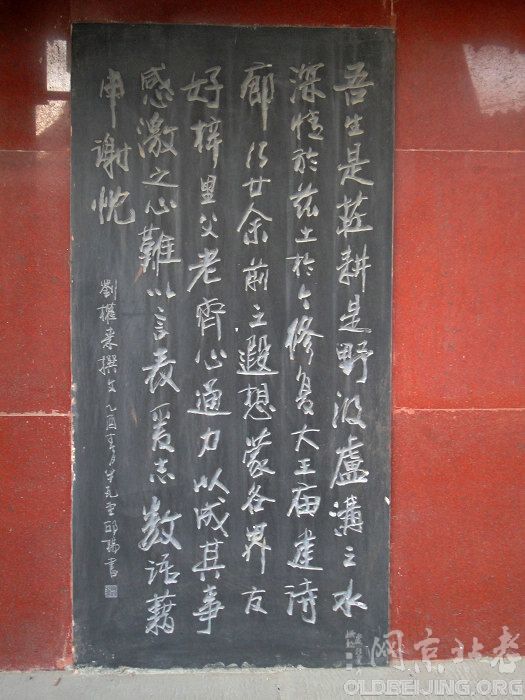 吾生是莊耕是野汲盧溝之水
深情於茲土於今修复大王庙建詩
廊乃廿余前之遐想蒙各界友
好梓里父老齊心通力以成其事
感激之心難以言表爰志数語藉
申謝忱
劉權来撰文 乙酉春月 書
网京北老
OLDBEIJING.ORG